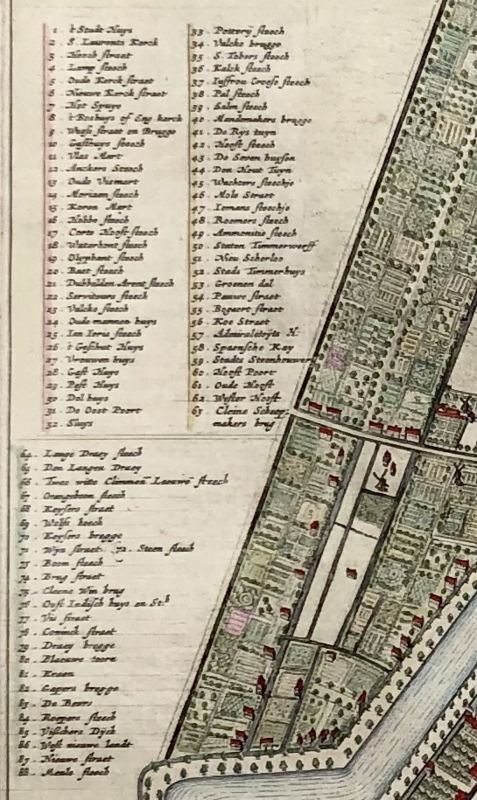 1 . t Stadt Huys
2 . S. Laurents Kerck
3 . Hooch straet
4 . Lamp steech
5 . Oude Kerck straet
6 . Nieuwe Kerck straet
7 . Het Spuye
8 . t Boshuys of Eng. kerck
9 . straet en Brugge
10 . Gasthuys steech
11 . Vlas Mart
12 . Anckers Steech
13 . Oude Vismart
14 . Moriaen steech
15 . Koren Mart
16 . Hobbe steech
17 . Corte Hooft steech
18 . Waterhont steech
19 . Olyphant steech
20 . Baet steech
21 . Dubbelden Arent steech
22 . Servituers steech
23 . Valcke steech
24 . Oude mannen huys
25 . Ian steech
26 . t Geschut Huys
27 . Vrouwen huys
28 . Gast Huys
29 . Pest Huys
30 . Dol huys
31 . De Oost Poort
32 . Sluys
33 . Pottery steech
34 . Valcke brugge
35 . S. Tobers steech
36 . Kalck steech
37 . Iuffrou steech
38 . Pal steech
39 . Salm steech
40 . Mandemakers brugge
41 . De Rys tuyn
42 . Hooft steech
43 . De Seven huysen
44 . Den Hout Tuyn
45 . Wachters steechje
46 . Mole Straet
47 . Lomens steechje
48 . Roemers steech
49 . Ammonitie steech
50 . Staten Timmerwerff
51 . Nieu
52 . Stads Timmerhuys
53 . Groenen dal
54 . Pauwe straet
55 . Bogaert straet
56 . Koe Straet
57 . Admiraliteyts H.
58 . Spaensche Kay
59 . Stadts
60 . Hooft Poort
61 . Oude Hooft
62 . Wester Hooft
63 . Cleine Scheep
makers brug
64 . Lange Draey steech
65 . Den Langen Draey
66 . Twee witte Clommen Leeuwe steech
67 . Orangeboom steech
68 . Keysers straet
69 . Wolfs hoech
70 . Keysers brugge
71 . Wyn straet. 72 . Steen steech
73 . Boom steech
74 . Brug straet
75 . Cleene Win brug
76 . Oost Indisch huys en St.
77 . Vis straet
78 . Coninck straet
79 . Draey brugge
80 . Blaeuwe toorn
81 . Kraen
82 . Gapers brugge
83 . De Beurs
84 . Roepers steech
85 . Visschers Dyck
86 . West nieuwe landt
87 . Nieuwe straet
88 . Meule steech